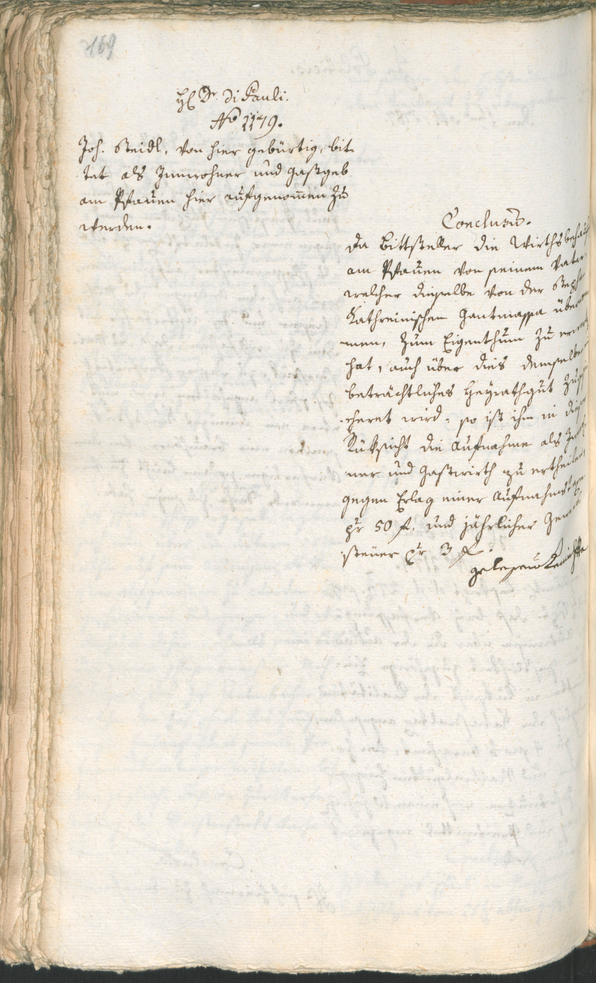 169
H. Dr. di Pauli.
No 1179.
Joh. Steidl, von hier gebürtig, bit-
tet als Innwohner und Gastgeb
am Pfauen hier aufgenommen zu
werden.
Conclusum.
Da Bittsteller die Wirthsbehau
am Pfauen von seinem Vater
welcher dieselbe von der Steph
Kathreinischen Gantmassa übern
men, zum Eigenthum zu
hat, auch über dies demselben
beträchtliches Heyrathgut zuge
cheret wird, so ist ihm in dieser
Rücksicht die Aufnahme als Inn
ner und Gastwirth zu ertheilen
gegen Erlag einer Aufnahms
pr 50 f. und jährlicher
steuer pr 3 f.